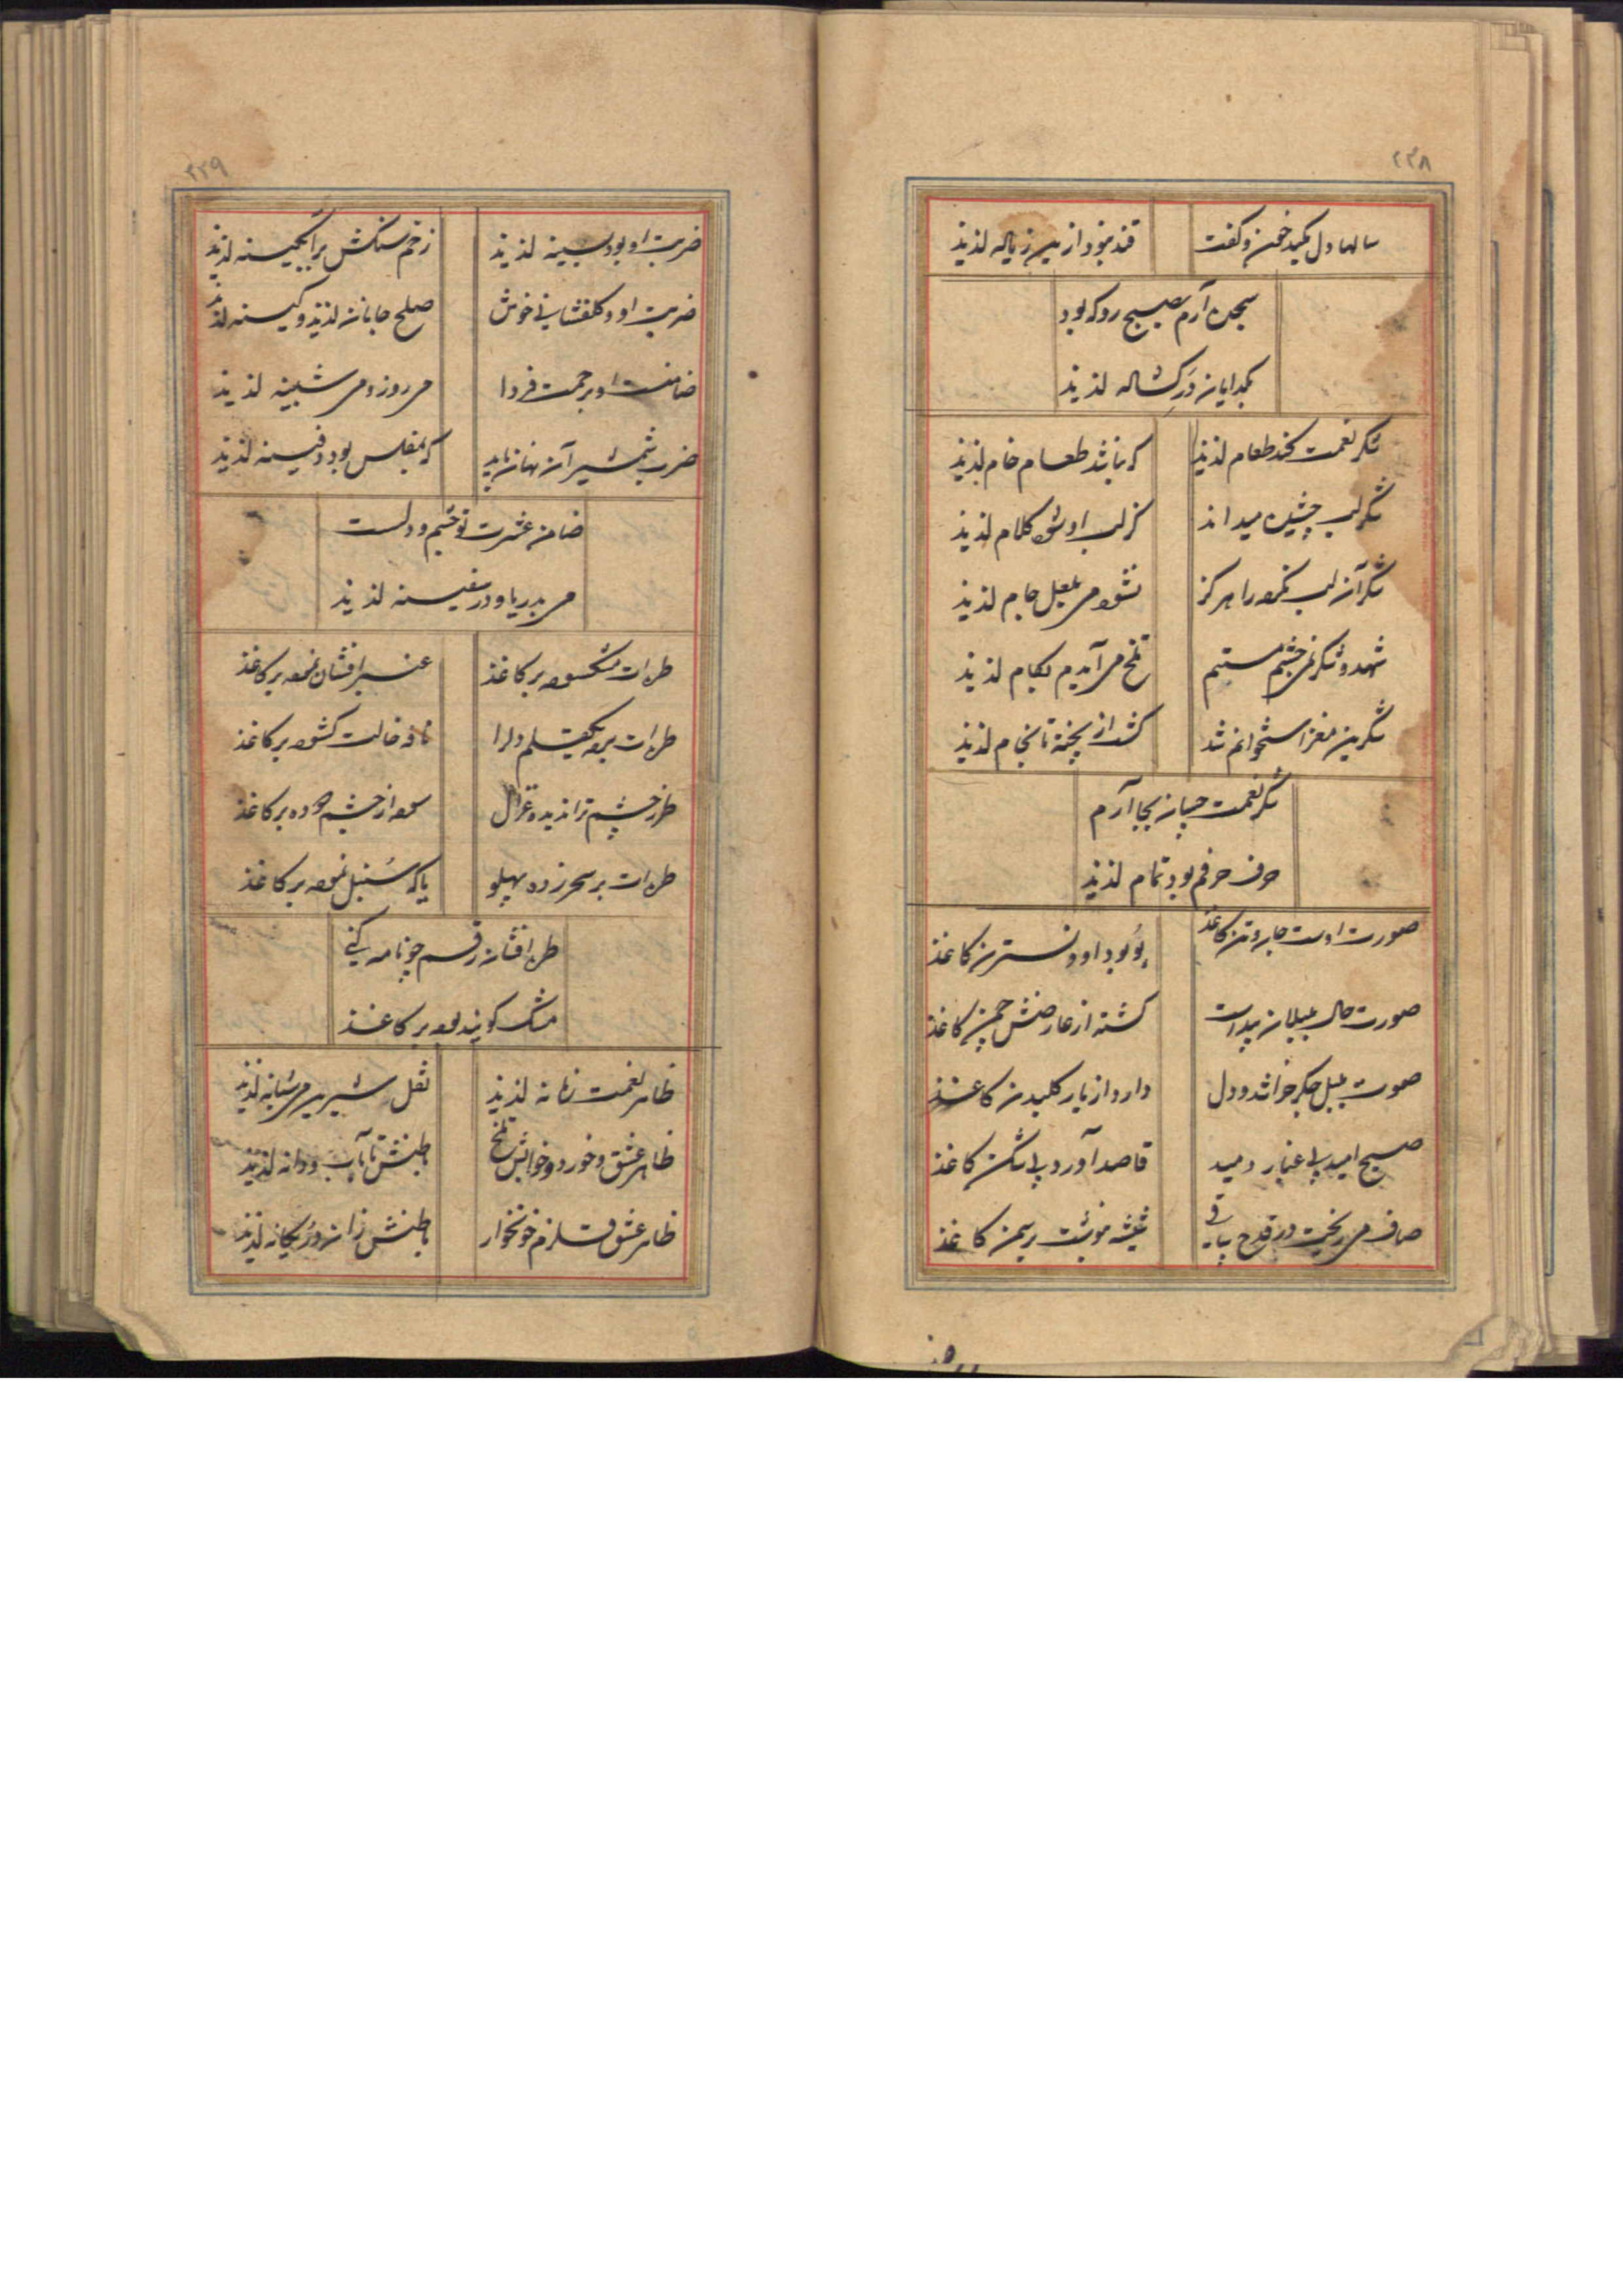 ۲۳۸
سالها دل مکید خون و گفت
قند نبود ازین زیاله لذیذ
سجده آرم بصبح رو که بود
بکدایان در کشاله لذیذ
شکر نعمت کند طعام لذیذ
که نباشد طعام خام لذیذ
شکر لب چشیده میداند
کز لب او شود کلام لذیذ
شکر آن لب نکرده را هرگز
نشود می بلعل جام لذیذ
شهد و شکر ز چشم مستم
تلخ می آیدم بکام لذیذ
شکرین مغز استخوانم شد
کشد از پخته تا بخام لذیذ
شکر نعمت چسان بجا آرم
حرف حرفم بود تمام لذیذ
صورت اوست جابروتن کاغذ
بو بود او و نسترن کاغذ
صورت حال بلبلان پیداست
کشته از عارضش چمن کاغذ
صوت بلبل جگر خراشد و دل
دارد از یار گلبدن کاغذ
صبح امید بی غبار دمید
قاصد آورد بی شکن کاغذ
صاف می ریخت در قدح ساقی
شیشه مو نیست ریسمن کاغذ
۲۳۹
ضربت او بود بسینه لذیذ
زخم سنگش بر آبگینه لذیذ
ضربت او و گلفشانی خوش
صلح جانان لذیذ و کینه لذیذ
ضامنست او برحمت فردا
می روز و می شبینه لذیذ
ضرب شمشیر آن نهان باید
که بمفلس بود دفینه لذیذ
ضامن عشرت تو چشم و دلست
می بدریا و در سفینه لذیذ
طره ات مشکسوده بر کاغذ
عنبر افشان نموده بر کاغذ
طره ات برده یکقلم دلرا
نافه خالت کشوده بر کاغذ
طرز چشم ترا ندیده غزال
سوده از چشم دوده بر کاغذ
طره ات بر سحر زده پهلو
یا که سنبل نموده بر کاغذ
طره افشان رقم چو نامه کنی
مشک کویند بوده بر کاغذ
ظاهر نعمت زمانه لذیذ
نقل شیرین می شبانه لذیذ
ظاهر عشق و خورد و خوابش تلخ
باطنش تا بآب و دانه لذیذ
ظاهر عشق قلزم خونخوار
باطنش زان در یگانه لذیذ